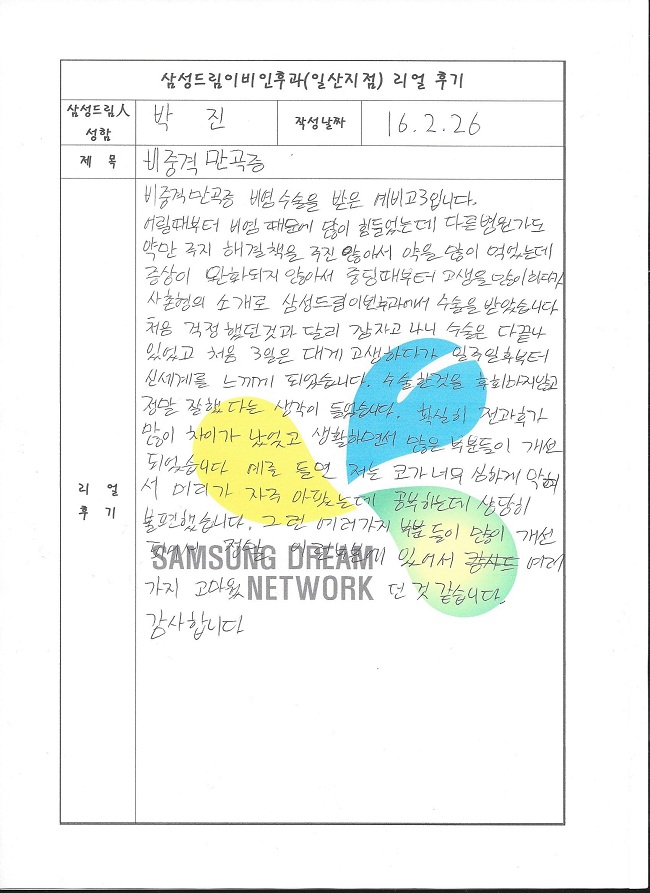 삼성드림이비인후과(일산지점) 리얼 후기
삼성드림人 성함
박 진
작성날짜
16.2.26
제 목
비중격만곡증
리 얼 후 기
비중격만곡증 비염수술을 받은 예비고3입니다.
어릴때부터 비염 때문에 많이 힘들었는데 다른병원가도
약만 주지 해결책을 주진 않아서 약을 많이 먹었는데
증상이 완화되지 않아서 중딩때부터 고생을많이하다가
사촌형의 소개로 삼성드림이빈후과에서 수술을 받았습니다
처음 걱정 했던것과 달리 잠자고 나니 수술은 다끝나
있었고 처음 3일은 대게 고생하다가 일주일후부터
신세계를 느끼게 되었습니다. 수술한것을 후회하지않고
정말 잘했다는 생각이 들었습니다. 확실히 전과후가
많이 차이가 났었고 생활하면서 많은 부분들이 개선
되었습니다 예를 들면 저는 코가너무 심하게 막혀
서 머리가 자주 아팠는데 공부하는데 상당히
불편했습니다. 그런 여러가지 부분들이 많이 개선
되어서 정말 있어서 여러
가지 고마웠던것 같습니다.
감사합니다
SAMSUNG DREAM
NETWORK